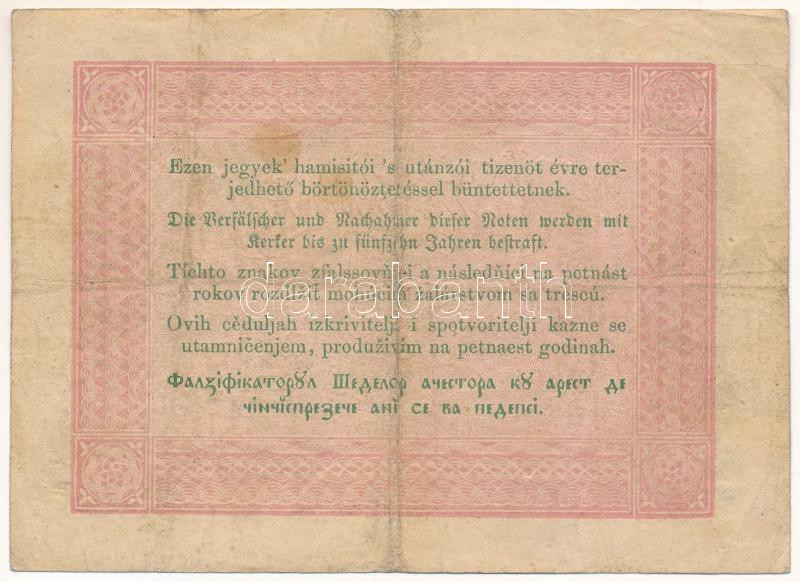 Ezen jegyek' hamisitói 's utánzói tizenöt évre ter-
jedhető börtönöztetéssel büntettetnek.
Die Verfälscher und Nachahmer dieser Noten werden mit
Kerker bis zu fünfzehn Jahren bestraft.
Tíchto znakov zfalssovňíci a následňíci na petnást
rokov rozdlžiť mohúcim žalárstvom sa trescú.
darabanth
Ovih cĕduljah izkrivitelji i spotvoritelji kazne se
utamničenjem, produživim na petnaest godinah.
Фалзіфікаторꙋл Шеделор ачестора кꙋ арест де
чінчіспрезече ані се ва педепсі.